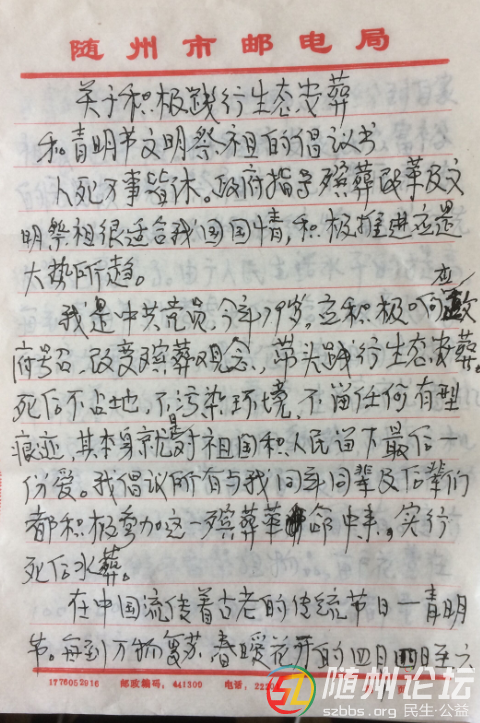 随州市邮电局
关于积极践行生态安葬
和青明节文明祭祖的倡议书
人死万事皆休。政府指导殡葬改革及文
明祭祖很适合我国国情,积极推进应是
大势所趋。
我是中共党员,今年79岁,应积极响应政
府号召,改变殡葬观念,带头践行生态安葬。
死后不占地,不污染环境,不留任何有型
痕迹,其本身就是对祖国和人民留下最后一
份爱。我倡议所有与我同年同辈及后辈们
都积极参加这一殡葬革命中来,实行
死后水葬。
在中国流传着古老的传统节日—青明
节。每到万物复苏,春暖花开的四月四日至六
邮政编码:441300 电话:
随州论坛
szbbs.org 民生·公益